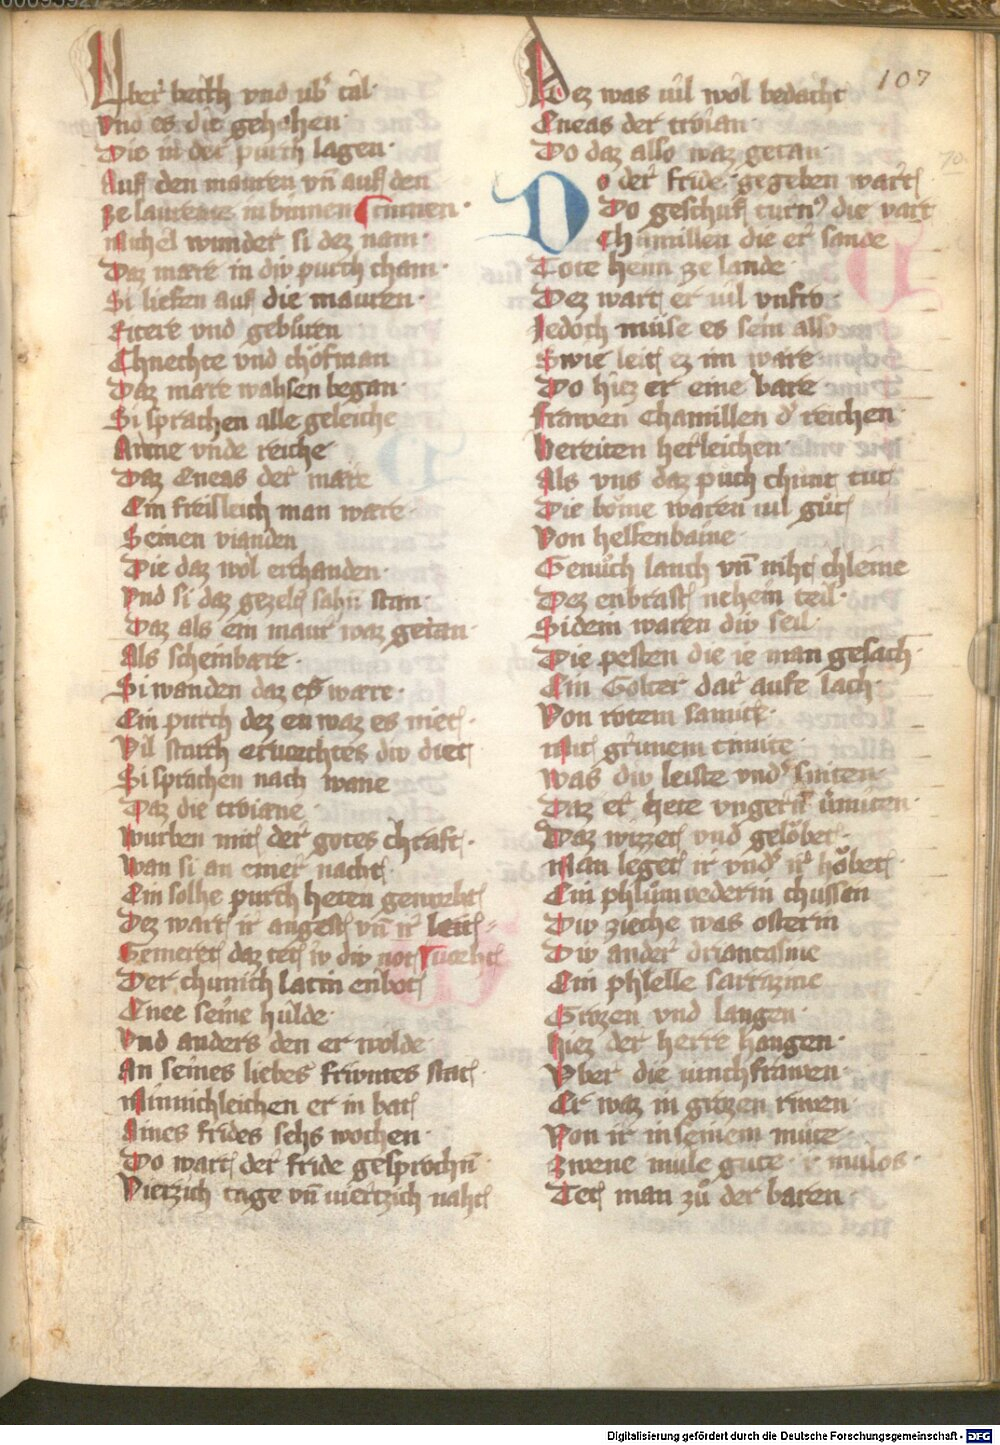 Vber berch vnd vbˀ tal·
Vnd es die gehohen·
Die in der purch lagen·
Auf den mauren vn̄ auf den
Ze laurente in binnen cinnen·
Michel wunder si dez nam·
Daz mære in div purch cham·
Si liefen auf die mauren·
Ritere vnd gebauren
Chnechte vnd chofman
Daz mære wahsen began·
Si sprachen alle geleiche
Arme vnde reiche
Daz Eneas der mære
Ein freisleich man wære·
Seinen vianden
Die daz wol erchanden·
Vnd si daz gezelt sahn stan·
Daz als ein maur waz getan·
Als scheinbære·
Si wanden daz es wære·
Ein purch dez en waz es niet·
Vil starch ervorchtes div diet
Si sprachen nach wane
Daz die troiane
Wurben mit der gotes chraft·
Wan si an einer nacht
Ein solhe purch heten geworht
Dez wart ir angest vn̄ ir leit
Gemeret daz tet iv div not vorht
Der chunich latin enbot
Enee seine hulde·
Vnd anders den er wolde·
An seines liebes friundes stat·
Minnichleichen er in bat
Aines frides sehs wochen·
Do wart der fride gesprochn̄·
Viertzich tage vn̄ viertzich naht
Dez was uil wol bedacht
Eneas der troian·
Do daz also waz getan·
107
70
Do der fride gegeben wart
Do geschuf turnˀ die vart
Chamillen die er sande
Tote heim ze lande
Dez wart er uil vnfro
Jedoch muse es sein also
Swie leit ez im wære
Do hiez er eine bare
Frawen Chamillen dˀ reichen
Bereiten herleichen·
Als vns daz puch chunt tut
Die bome waren uil gut
Von helfenbaine
Genuch lanch vn̄ niht chleine
Dez enbrast nehein teil·
Sidem waren div seil·
Die pesten die ie man gesach·
Ein Golter dar aufe lach·
Von rotem samite·
Mit grunem timite·
Was div leiste vndˀ sniten
Daz er hete vngern̄ uermiten·
Daz wizzet vnd gelobet·
Man leget ir vndˀ ir hobet·
Ein phlumvederin chussen
Div zieche was osterin
Div ander driantasme
Ein phelle sarrazine
Grozen vnd langen·
Hiez der herre hangen·
Vber die iunchfrawen·
Er waz in grozen riwen·
Von ir in seinem mute·
Zwene mule gute· r mulos·
Tet man zu der baren·
Digitalisierung gefördert durch die Deutsche Forschungsgemeinschaft - DFG